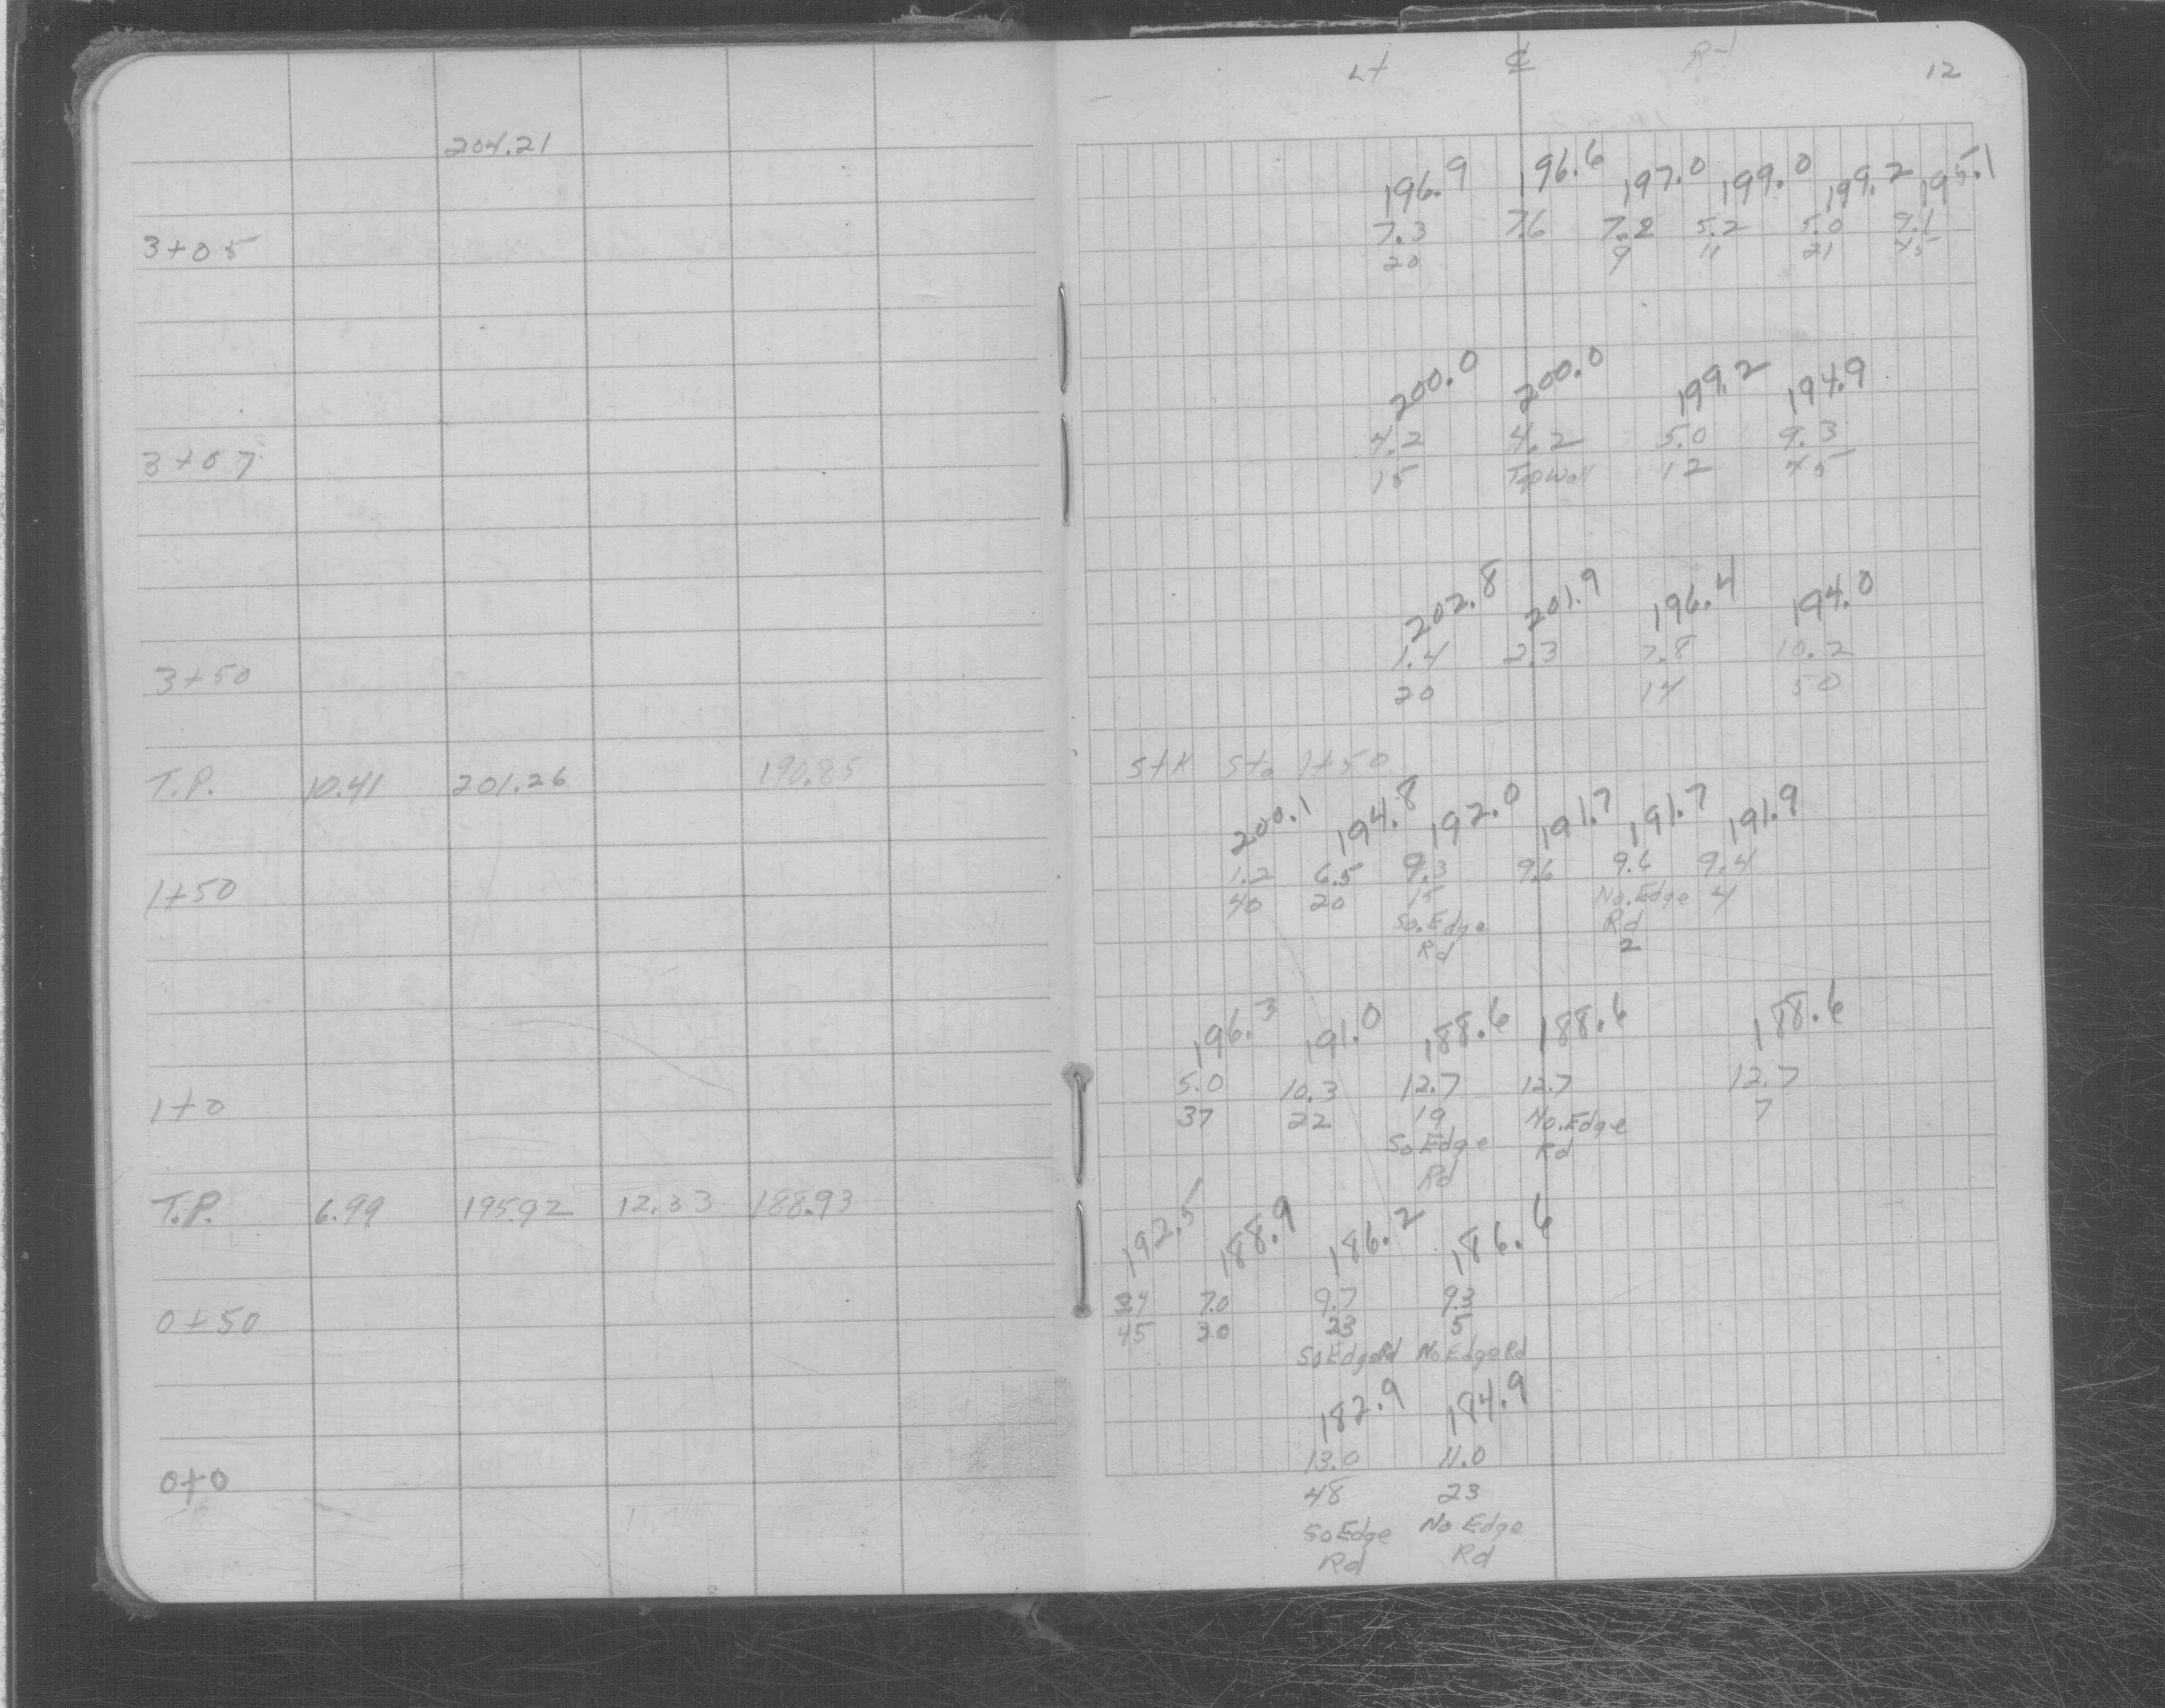 Lt ℄ Rt 12
204.21
196.9 196.6 197.0 199.0 199.2 195.1
3+05 7.3 7.6 7.2 5.2 5.0 9.1
20 9 11 21 45
200.0 200.0 199.2 194.9
4.2 4.2 5.0 9.3
3+07 15 Top Wall 12 45
202.8 201.9 196.4 194.0
1.4 2.3 7.8 10.2
3+50 20 14 50
T.P. 10.41 201.26 190.85 Stk Sta 1+50
200.1 194.8 192.0 191.7 191.7 191.9
1.2 6.5 9.3 9.6 9.6 9.4
1+50 40 20 15 No.Edge 4
So.Edge Rd
Rd 2
196.3 191.0 188.6 188.6 188.6
5.0 10.3 12.7 12.7 12.7
1+0 37 22 19 No.Edge 7
So Edge Rd
Rd
T.P. 6.99 195.92 12.33 188.93
192.5 188.9 186.2 186.6
3.4 7.0 9.7 9.3
0+50 45 30 23 5
So Edge Rd No Edge Rd
182.9 184.9
13.0 11.0
0+0 48 23
So Edge No Edge
Rd Rd